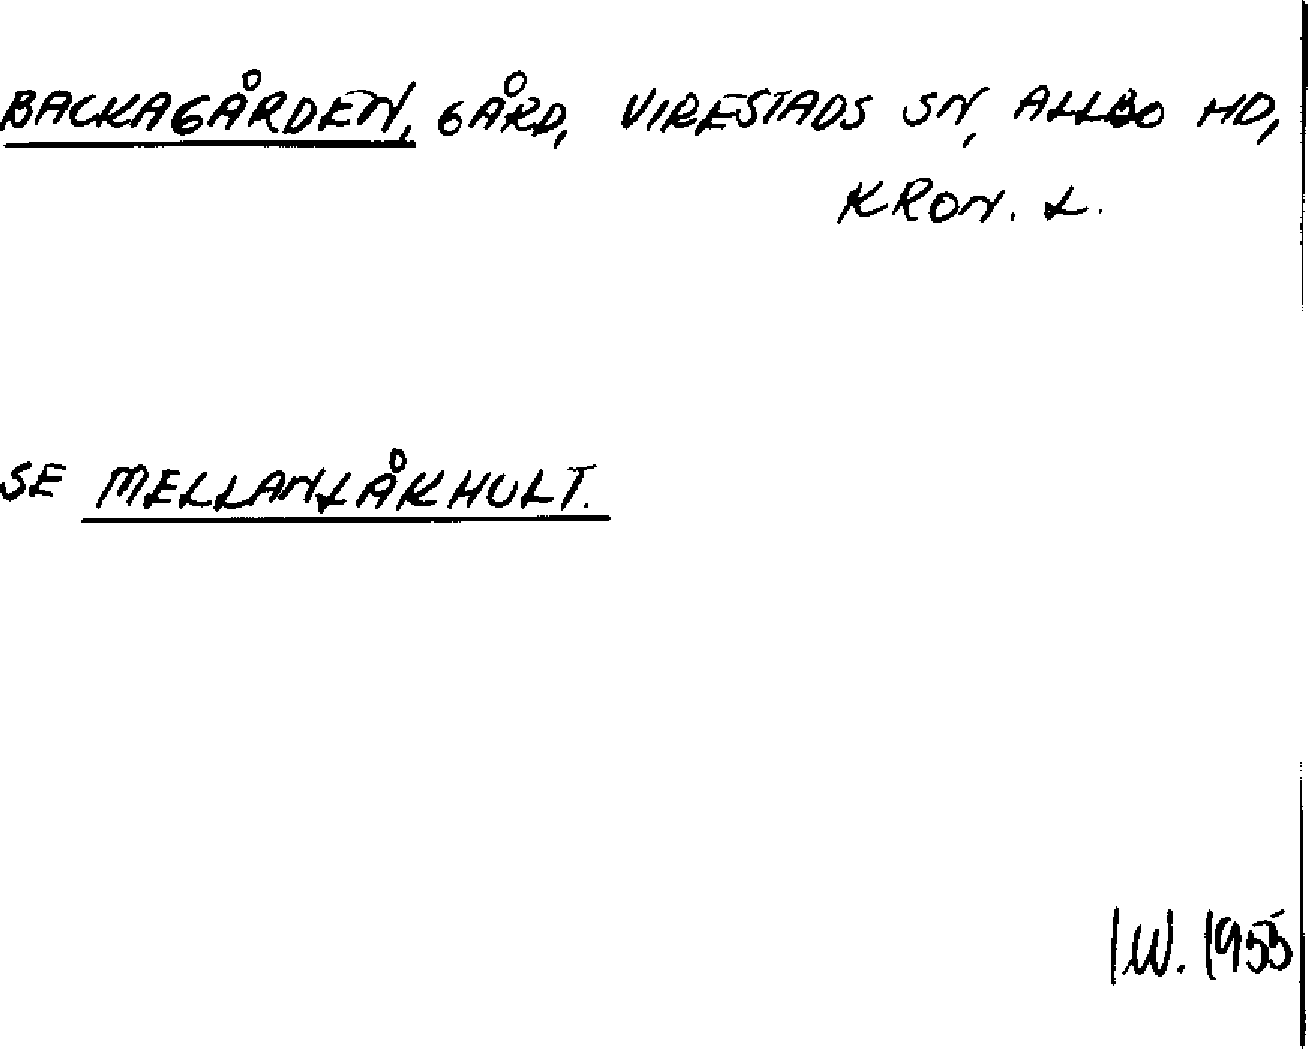 BACKAGÅRDEN, GÅRD, VIRESTADS SN, ALLBO HD,
KRON. L.
SE MELLANLÅKHULT.
I.W. 1955